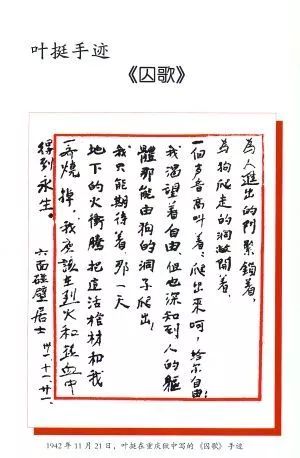 叶挺手迹
《囚歌》
為人進出的門緊鎖着,
為狗爬走的洞敞開着,
一個声音高叫着:爬出來呵,給尔自由!
我渴望着自由,但也深知到人的軀
體那能由狗的洞子爬出!
我只能期待着那一天
地下的火衝騰把這活棺材和我
一齊燒掉,我應該在烈火和熱血中
得到永生。
六面碰壁居士 卅一.十一.廿一.
1942年11月21日,叶挺在重庆狱中写的《囚歌》手迹